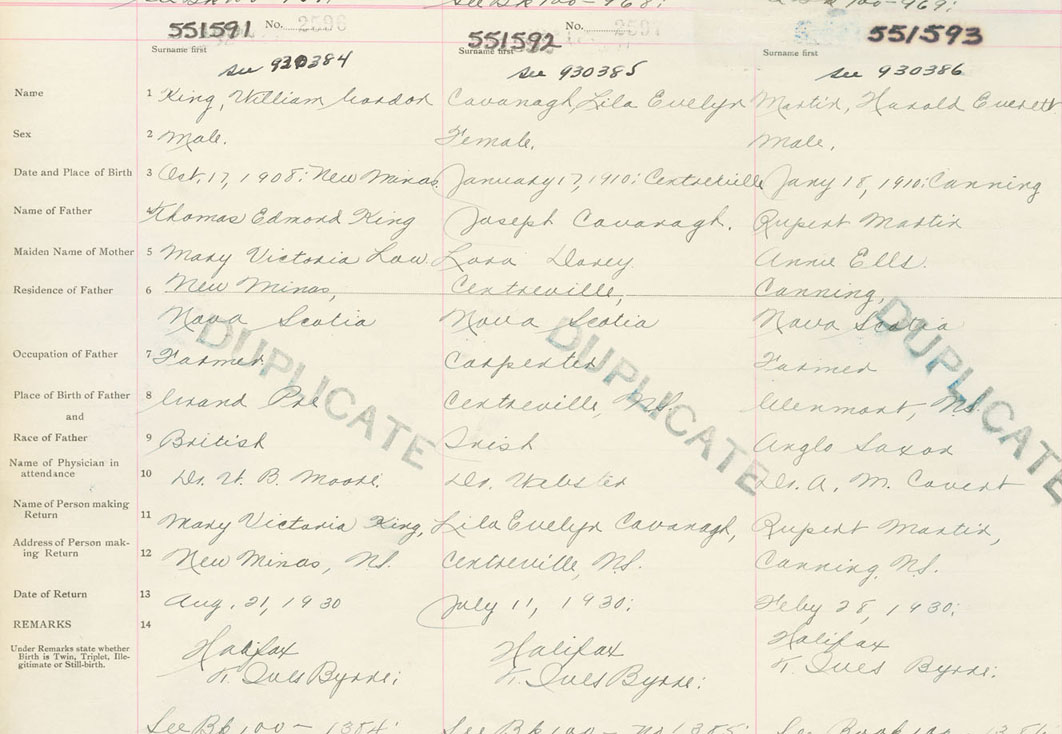 551591 No. 2596
551592 No. 2597
551593
Surname first
Surname first
Surname first
See 930384
See 930385
See 930386
Name 1 King, William Gordon Cavanagh, Lila Evelyn Martin, Harold Everett
Sex 2 Male. Female. Male.
Date and Place of Birth 3 Oct. 17, 1908: New Minas January 17, 1910: Centreville Jany 18, 1910: Canning
Name of Father 4 Thomas Edmond King Joseph Cavanagh. Rupert Martin
Maiden Name of Mother 5 Mary Victoria Law Lora Davey. Annie Ells.
Residence of Father 6 New Minas, Centreville, Canning,
Nova Scotia Nova Scotia Nova Scotia
Occupation of Father 7 Farmer. Carpenter Farmer
Place of Birth of Father 8 Grand Pre Centreville, N.S. Glenmont, N.S.
and
Race of Father 9 British Irish Anglo Saxon
Name of Physician in
attendance 10 Dr. W. B. Moore. Dr. Webster Dr. A. M. Covert
Name of Person making
Return 11 Mary Victoria King, Lila Evelyn Cavanagh, Rupert Martin,
Address of Person mak-
ing Return 12 New Minas, N.S. Centreville, N.S. Canning, N.S.
Date of Return 13 Aug. 21, 1930 July 11, 1930: Feby 28, 1930:
REMARKS 14
Under Remarks state whether
Birth is Twin, Triplet, Ille-
gitimate or Still-birth.
Halifax Halifax Halifax
T. Ives Byrne: T. Ives Byrne: T. Ives Byrne:
DUPLICATE
DUPLICATE
DUPLICATE
See Bk 100 - 1384: See Bk 100 - No 1385: See Book 100 -